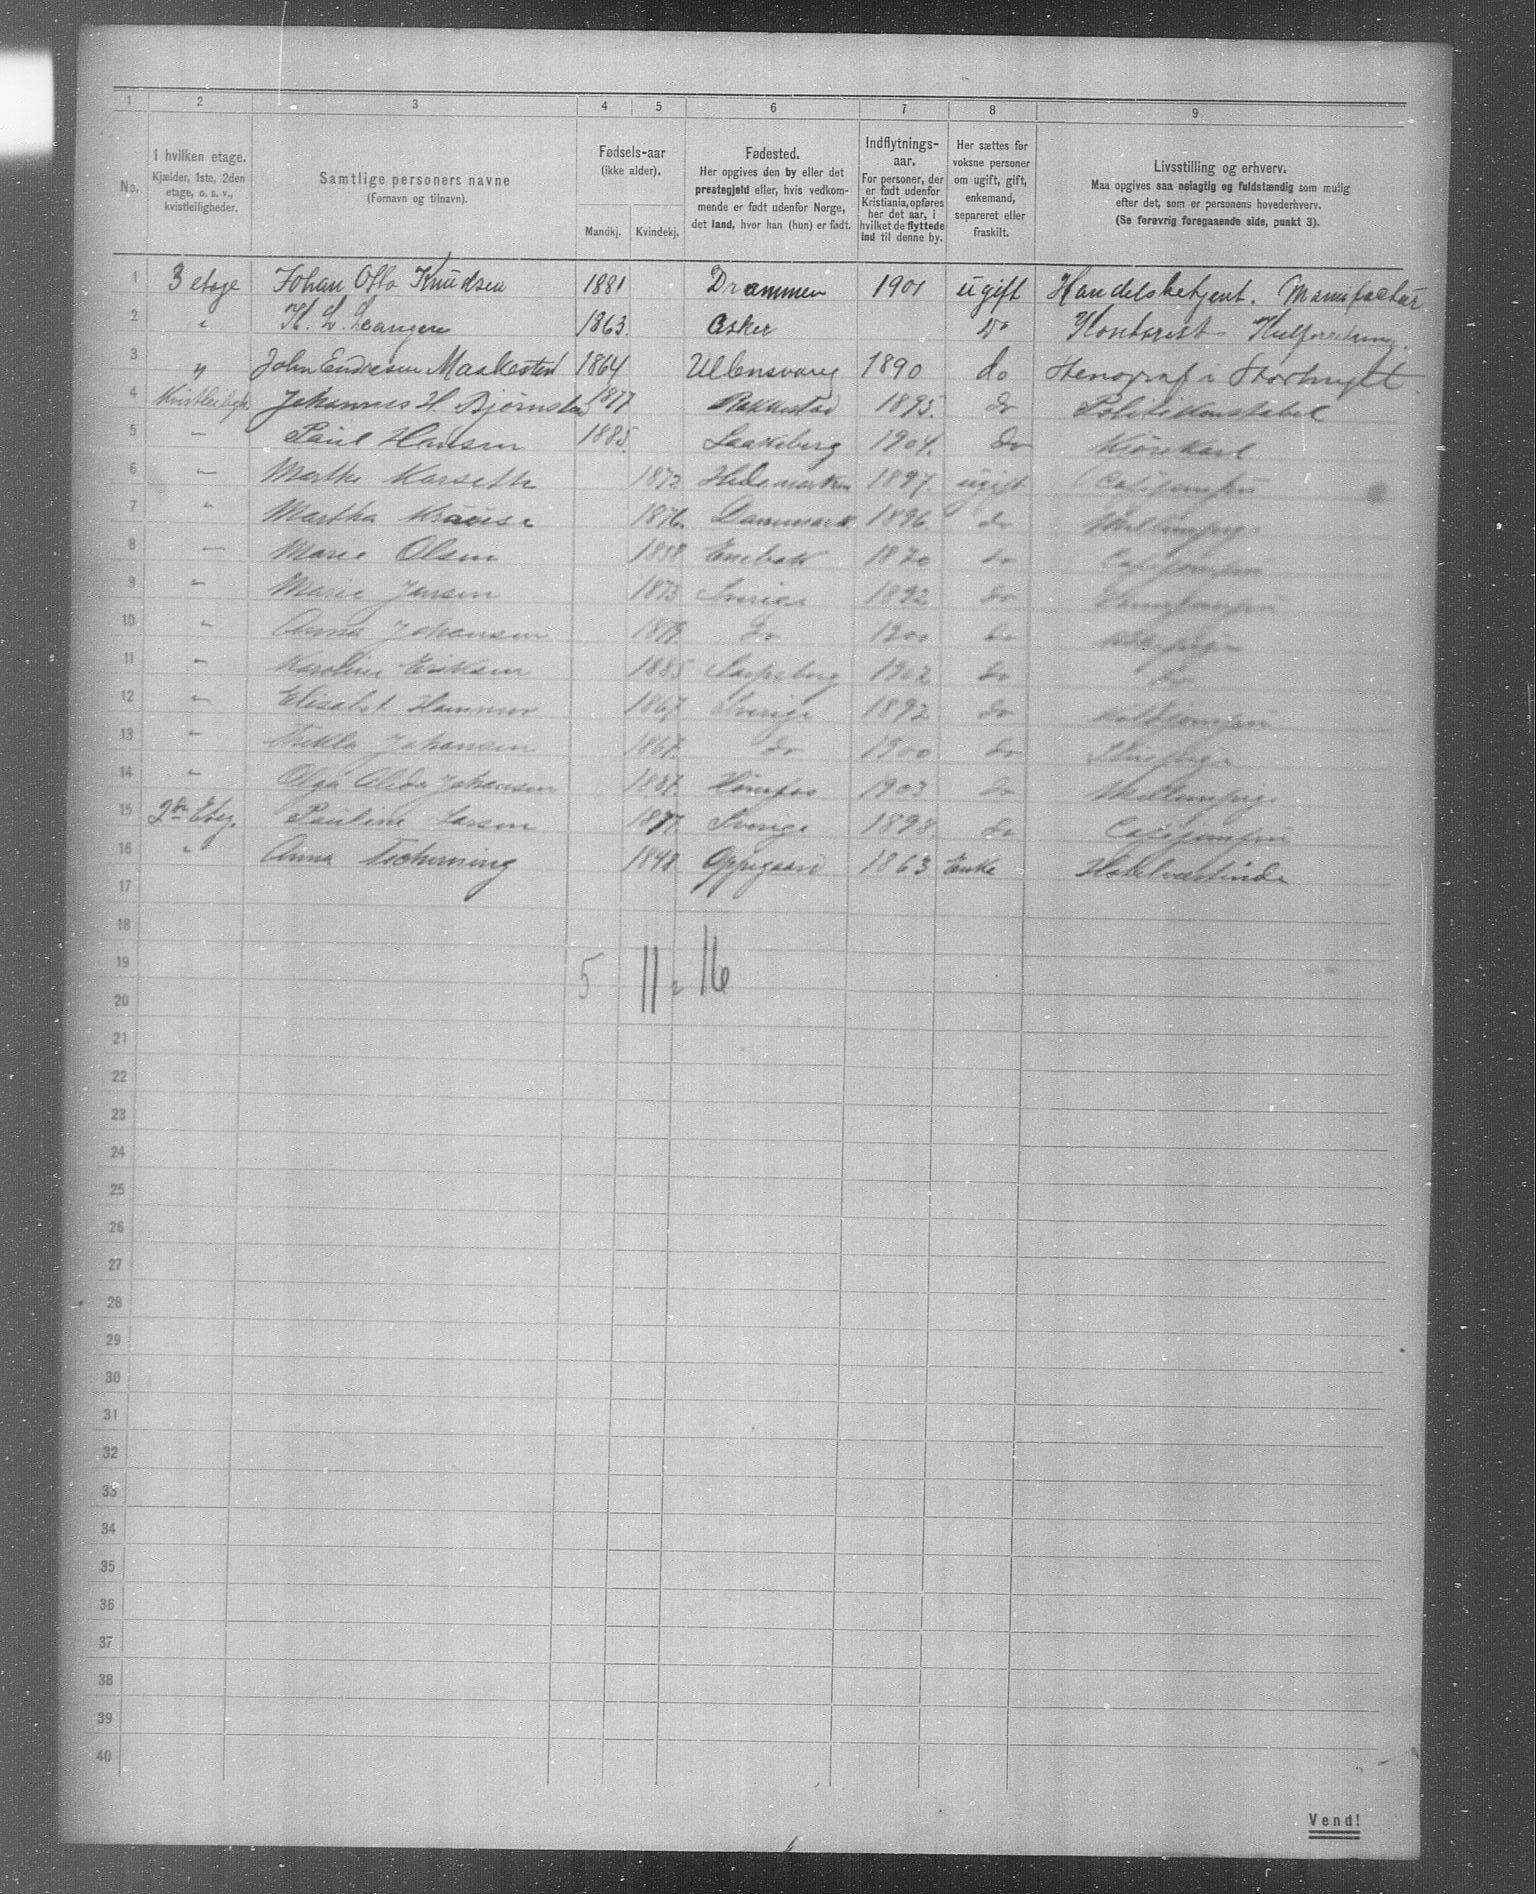 1 2 3 4 5 6 7 8 9
No.
I hvilken etage.
Kjælder, 1ste, 2den
etage, o. s. v.,
kvistleiligheder.
Samtlige personers navne
(Fornavn og tilnavn).
Fødsels-aar
(ikke alder).
Mandkj. Kvindekj.
Fødested.
Her opgives den by eller det
prestegjeld eller, hvis vedkom-
mende er født udenfor Norge,
det land, hvor han (hun) er født.
Indflytnings-
aar.
For personer, der
er født udenfor
Kristiania, opføres
her det aar, i
hvilket de flyttede
ind til denne by.
Her sættes for
voksne personer
om ugift, gift,
enkemand,
separeret eller
fraskilt.
Livsstilling og erhverv.
Maa opgives saa nøiagtig og fuldstændig som mulig
efter det, som er personens hovederhverv.
(Se forøvrig foregaaende side, punkt 3).
1 3 etage Johan Otto Knudsen 1881 Drammen 1901 ugift Handelsbetjent. Manufactur
2 " K. L. Leangen 1863. Asker Do Kontorist - Kulforretning.
3 " John Endresen Maakestad 1864 Ullensvang 1890 do Stenograf i Storthinget.
4 Kvistleiligh. Johannes H. Bjørnstad 1877 Rakkestad 1895. do Politikonstabel
5 " Paul Hansen 1885. 1904. do Kjørekarl
6 " Marthe Karseth 1872 Hedemarken 1897. ugift Cafejomfru
7 " Martha Krause 1876. Danmark. 1896. do Mellempige
8 " Marie Olsen 1858 Enebak 1870 do Cafejomfru
9 " Marie Jensen 1873 Sverige 1892 do
10 " Anna Johansen 1879. do 1900 do
11 " Karoline Eriksen 1885 Sarpsborg 1902 do do
12 " Elisabet Hammer 1867 Sverige 1892 do Koldjomfru
13 " Thekla Johansen 1867. do 1900 do
14 " Olga Alida Johansen 1887. Hønefos 1903 do Mellempige
15 2den Etag. Pauline Larsen 1877. Sverige 1898. do Cafejomfru
16 " Anna Tscherning 1848 Oppegaard 1863 Enke Hotelværtinde
17
18
19 5 11 = 16
20
21
22
23
24
25
26
27
28
29
30
31
32
33
34
35
36
37
38
39
40
Vend!